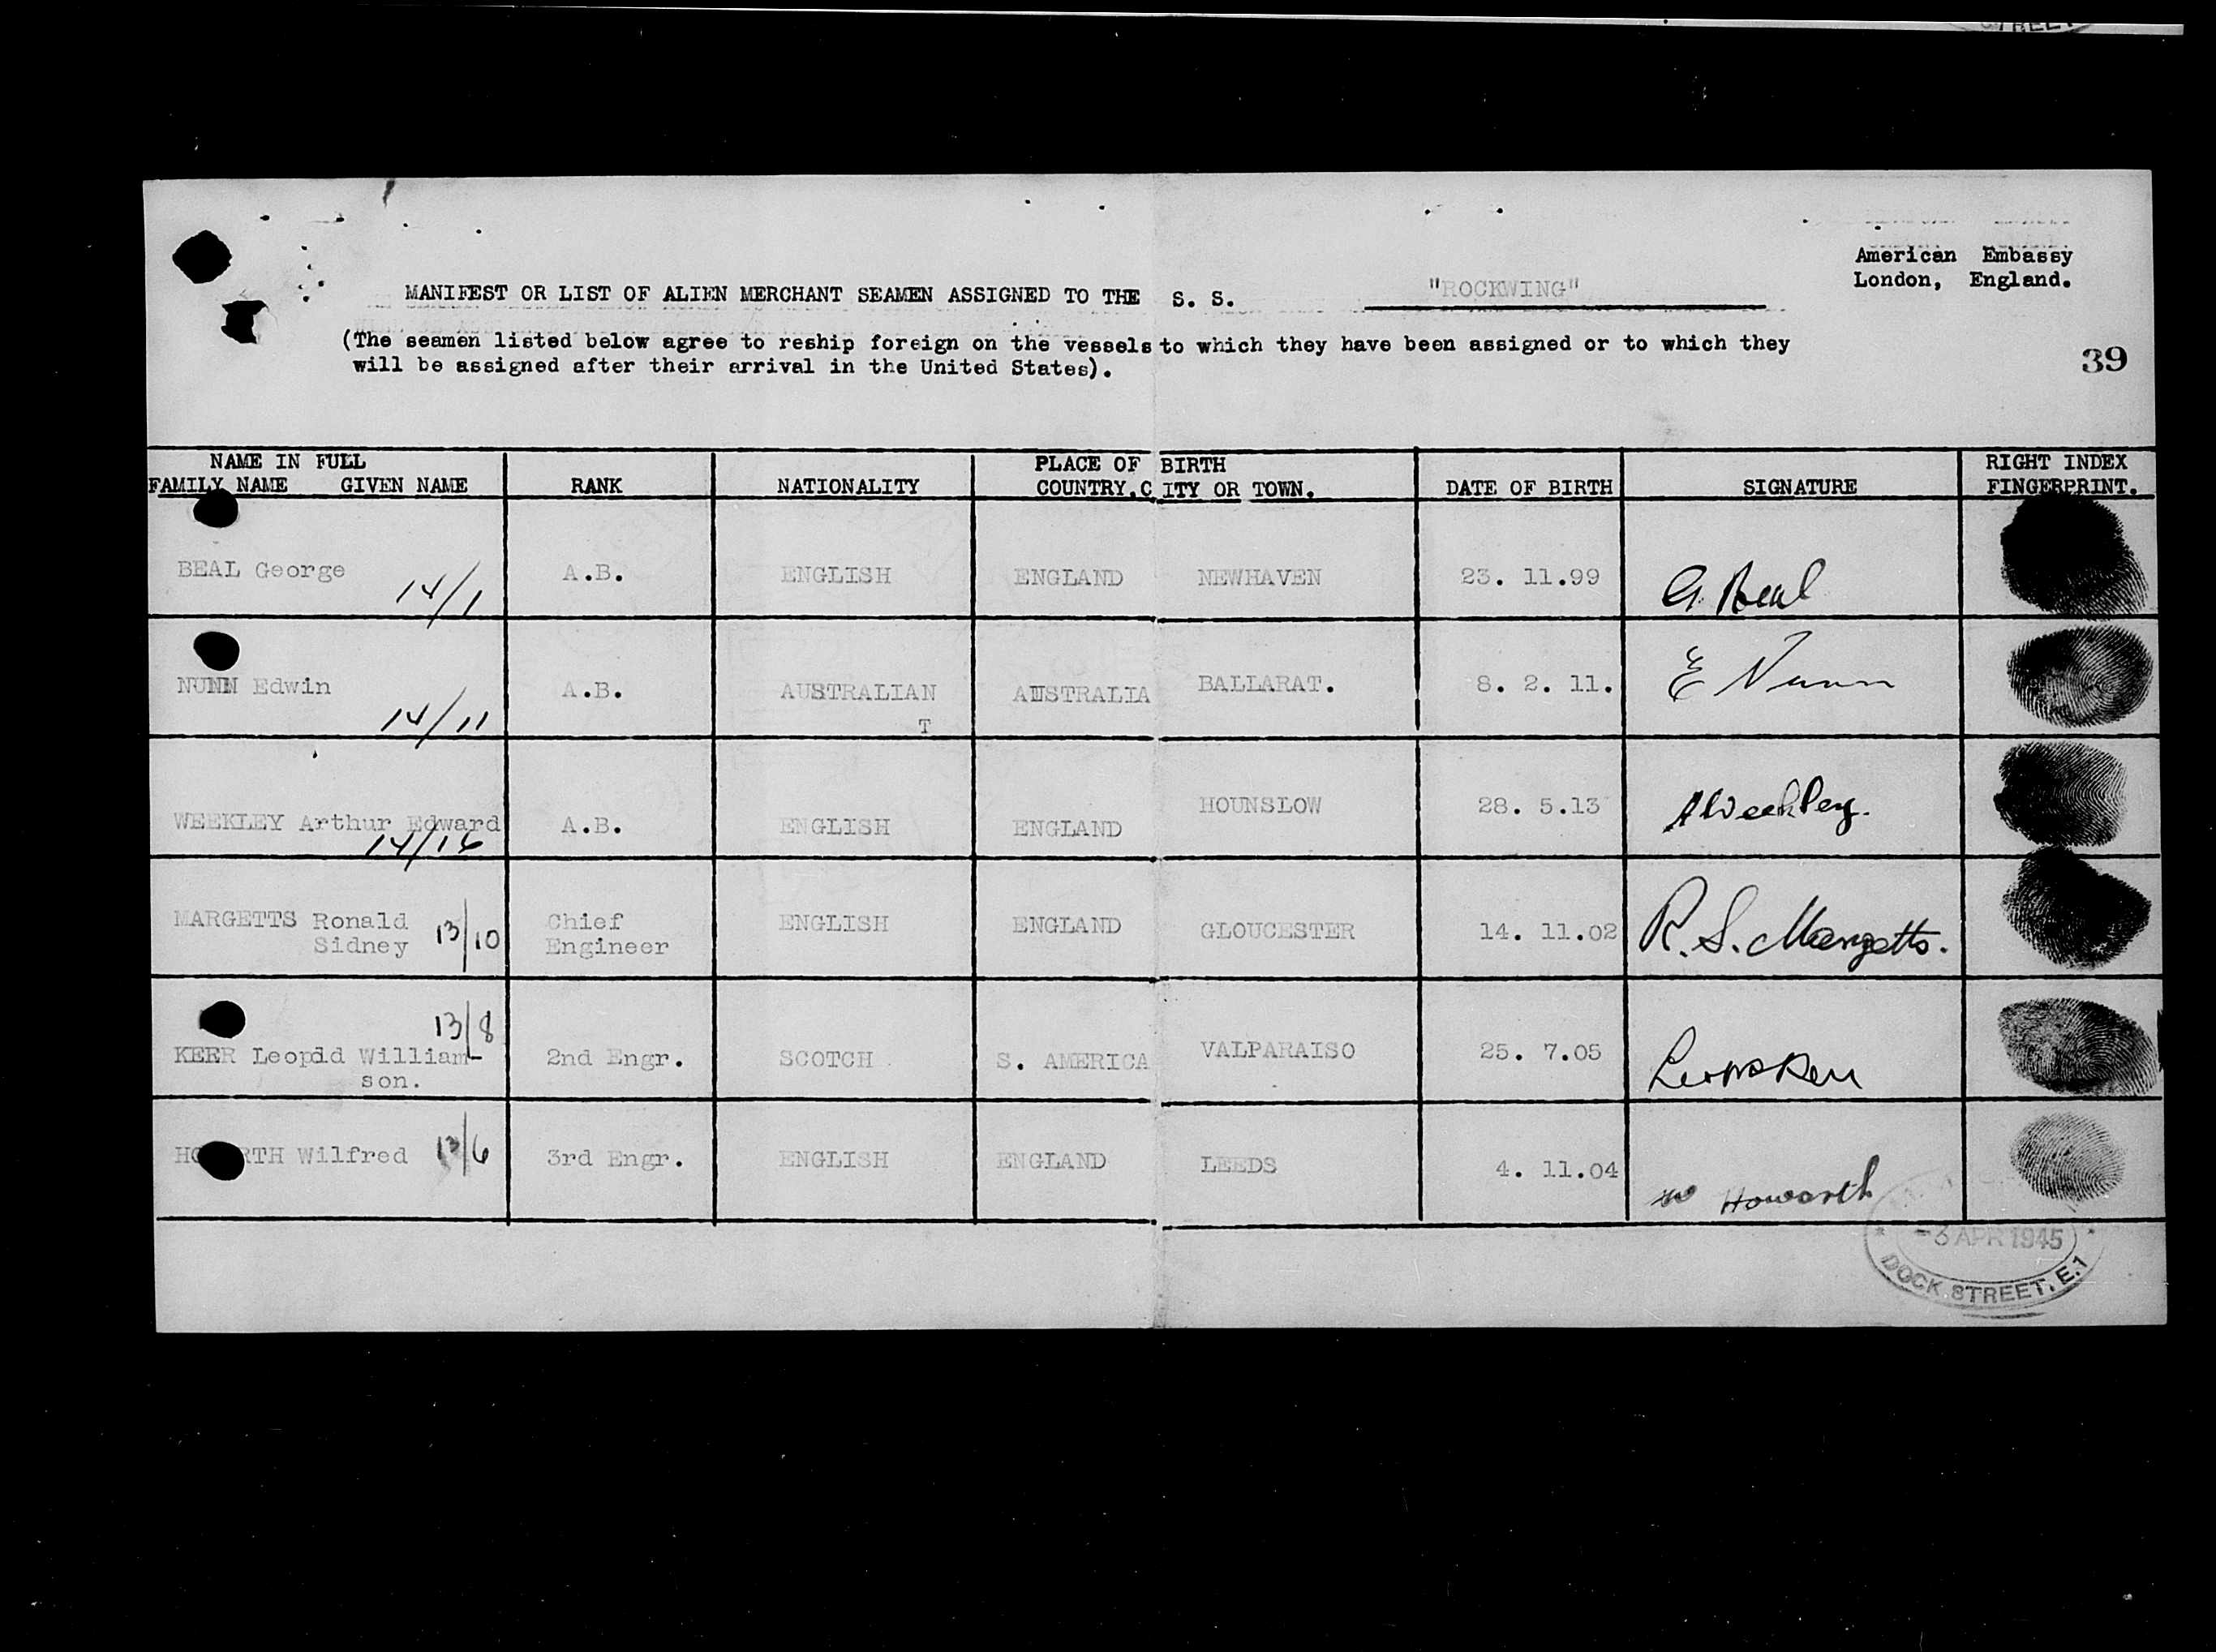 STREET
American Embassy
London, England.
MANIFEST OR LIST OF ALIEN MERCHANT SEAMEN ASSIGNED TO THE S. S. "ROCKWING"
(The seamen listed below agree to reship foreign on the vessels to which they have been assigned or to which they
will be assigned after their arrival in the United States).
39
NAME IN FULL PLACE OF BIRTH RIGHT INDEX
FAMILY NAME GIVEN NAME RANK NATIONALITY COUNTRY.CITY OR TOWN. DATE OF BIRTH SIGNATURE FINGERPRINT.
BEAL George A.B. ENGLISH ENGLAND NEWHAVEN 23. 11.99 G. Beal
14/1
NUNN Edwin A.B. AUSTRALIAN AUSTRALIA BALLARAT. 8. 2. 11. E Nunn
14/11 T
WEEKLEY Arthur Edward A.B. ENGLISH ENGLAND HOUNSLOW 28. 5.13 A Weekley.
14/16
MARGETTS Ronald 13/10 Chief ENGLISH ENGLAND GLOUCESTER 14. 11.02 R. S. Margetts.
Sidney Engineer
13/8
KERR Leopld William- 2nd Engr. SCOTCH S. AMERICA VALPARAISO 25. 7.05
son.
HO RTH Wilfred 13/6 3rd Engr. ENGLISH ENGLAND LEEDS 4. 11.04 W Howarth
-6 APR 1945
DOCK STREET, E.1